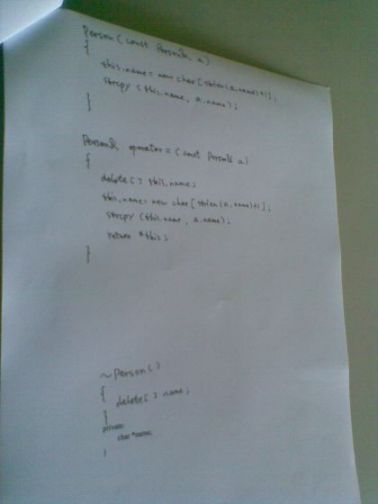 Person(const Person& a)
{
this.name= new char[strlen(a.name)+1];
strcpy (this.name, a.name);
}
Person& operator=(const Person& a)
{
delete[] this.name;
this.name= new char[strlen(a.name)+1];
strcpy (this.name, a.name);
return *this;
}
~Person()
{
delete[] name;
}
private:
char *name;
}